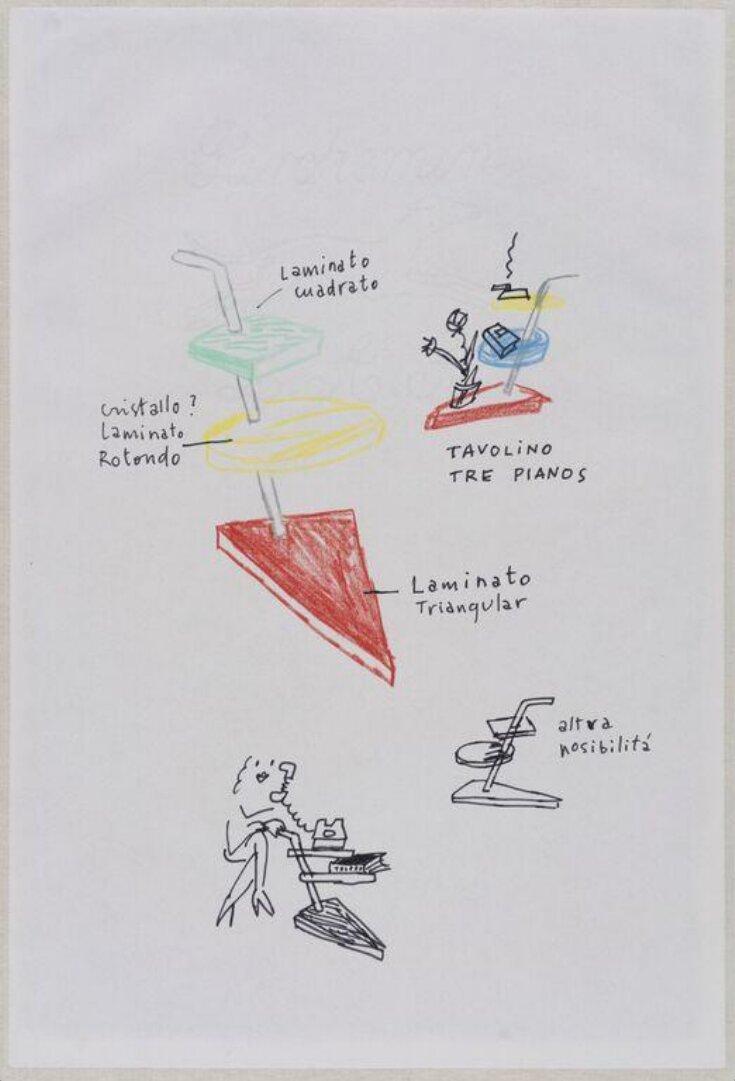 Laminato
cuadrato
cristallo?
Laminato
Rotondo
TAVOLINO
TRE PIANOS
Laminato
Triangular
altra
posibilitá